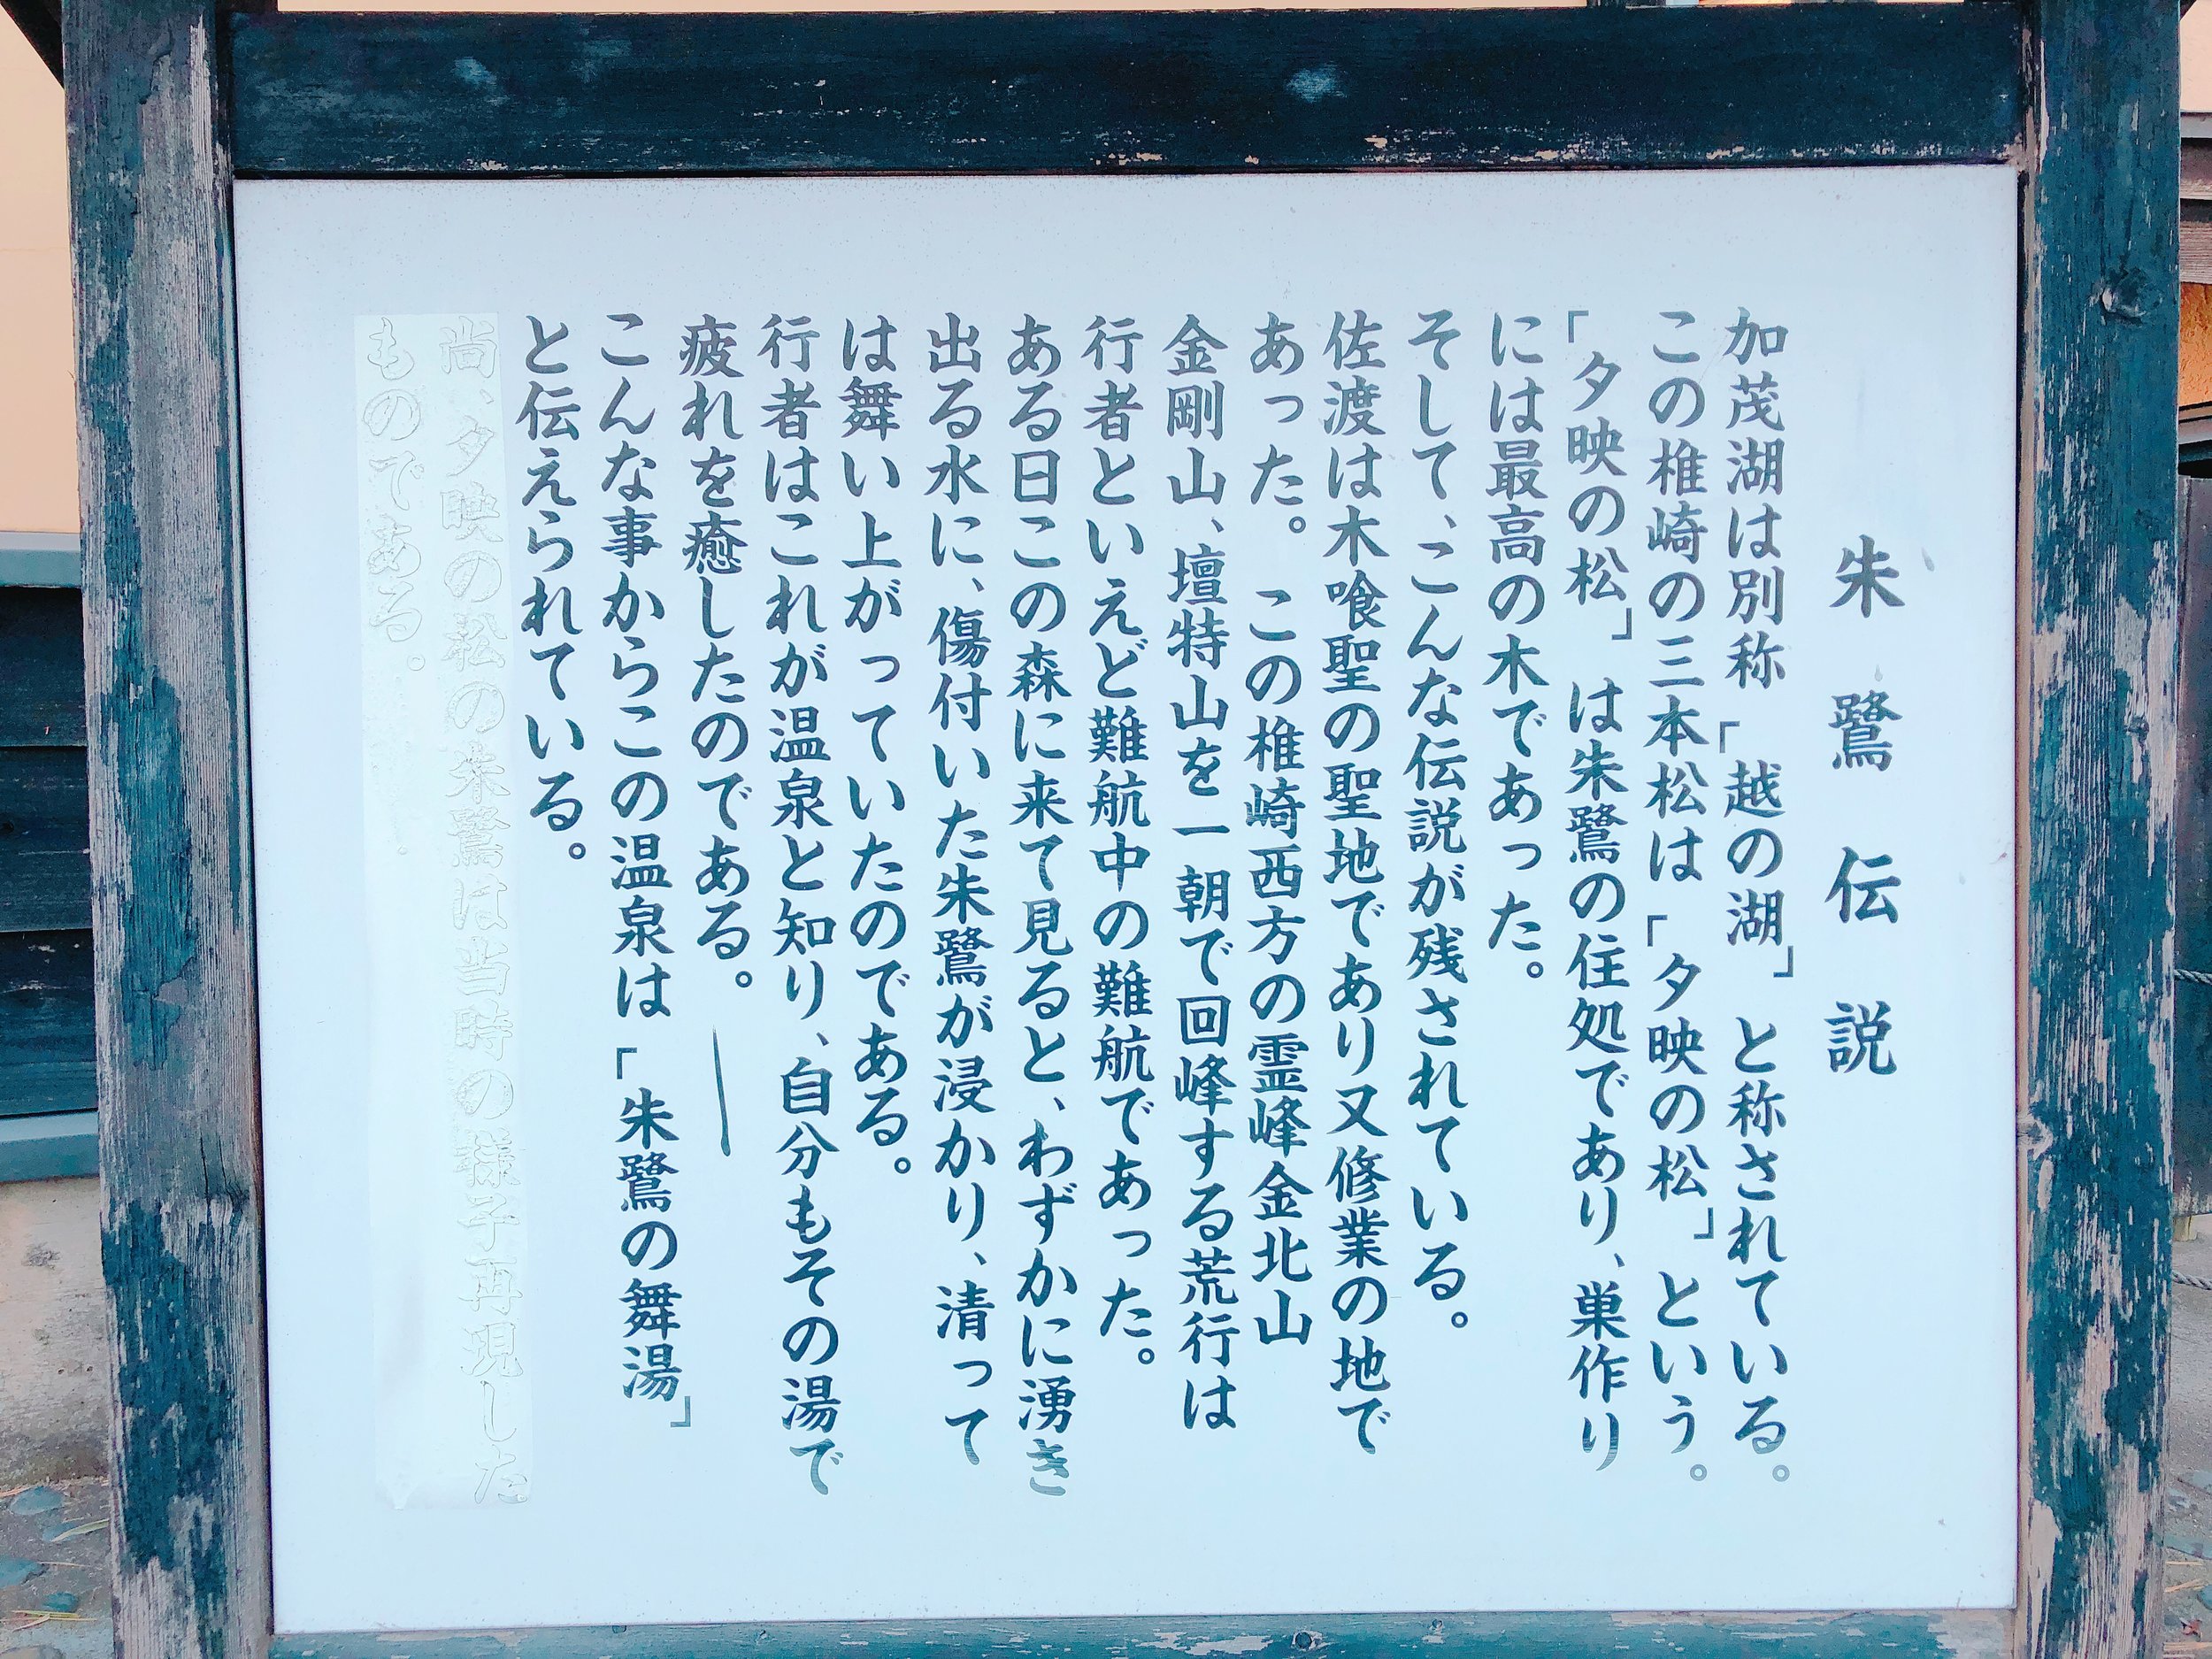 朱鷺伝説
加茂湖は別称「越の湖」と称されている。
この椎崎の三本松は「夕映の松」という。
「夕映の松」は朱鷺の住処であり、巣作り
には最高の木であった。
そして、こんな伝説が残されている。
佐渡は木喰聖の聖地であり又修業の地で
あった。この椎崎西方の霊峰金北山
金剛山、壇特山を一朝で回峰する荒行は
行者といえど難航中の難航であった。
ある日この森に来て見ると、わずかに湧き
出る水に、傷付いた朱鷺が浸かり、清って
は舞い上がっていたのである。
行者はこれが温泉と知り、自分もその湯で
疲れを癒したのである。
こんな事からこの温泉は「朱鷺の舞湯」
と伝えられている。
尚、夕映の松の朱鷺は当時の様子再現した
ものである。